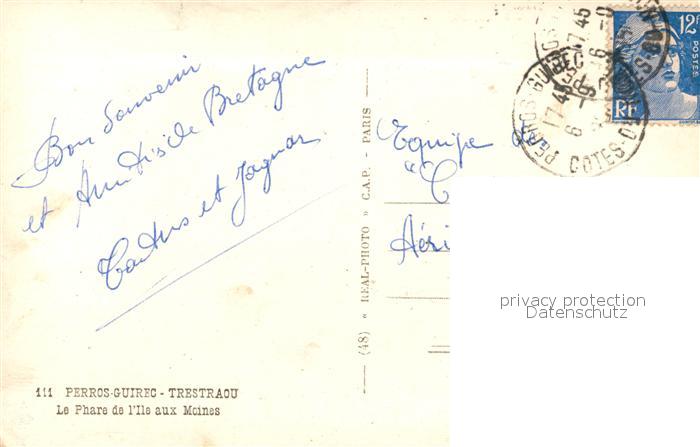 Bon Souvenir
et Amitiés de Bretagne
et Jaguar
Equipe
"C
Aéri
(48) « REAL-PHOTO » C.A.P. - PARIS
12F
POSTES
RF
PERROS-GUIREC
17 45
6
COTES-D
privacy protection
Datenschutz
111 PERROS-GUIREC - TRESTRAOU
Le Phare de l'Ile aux Moines